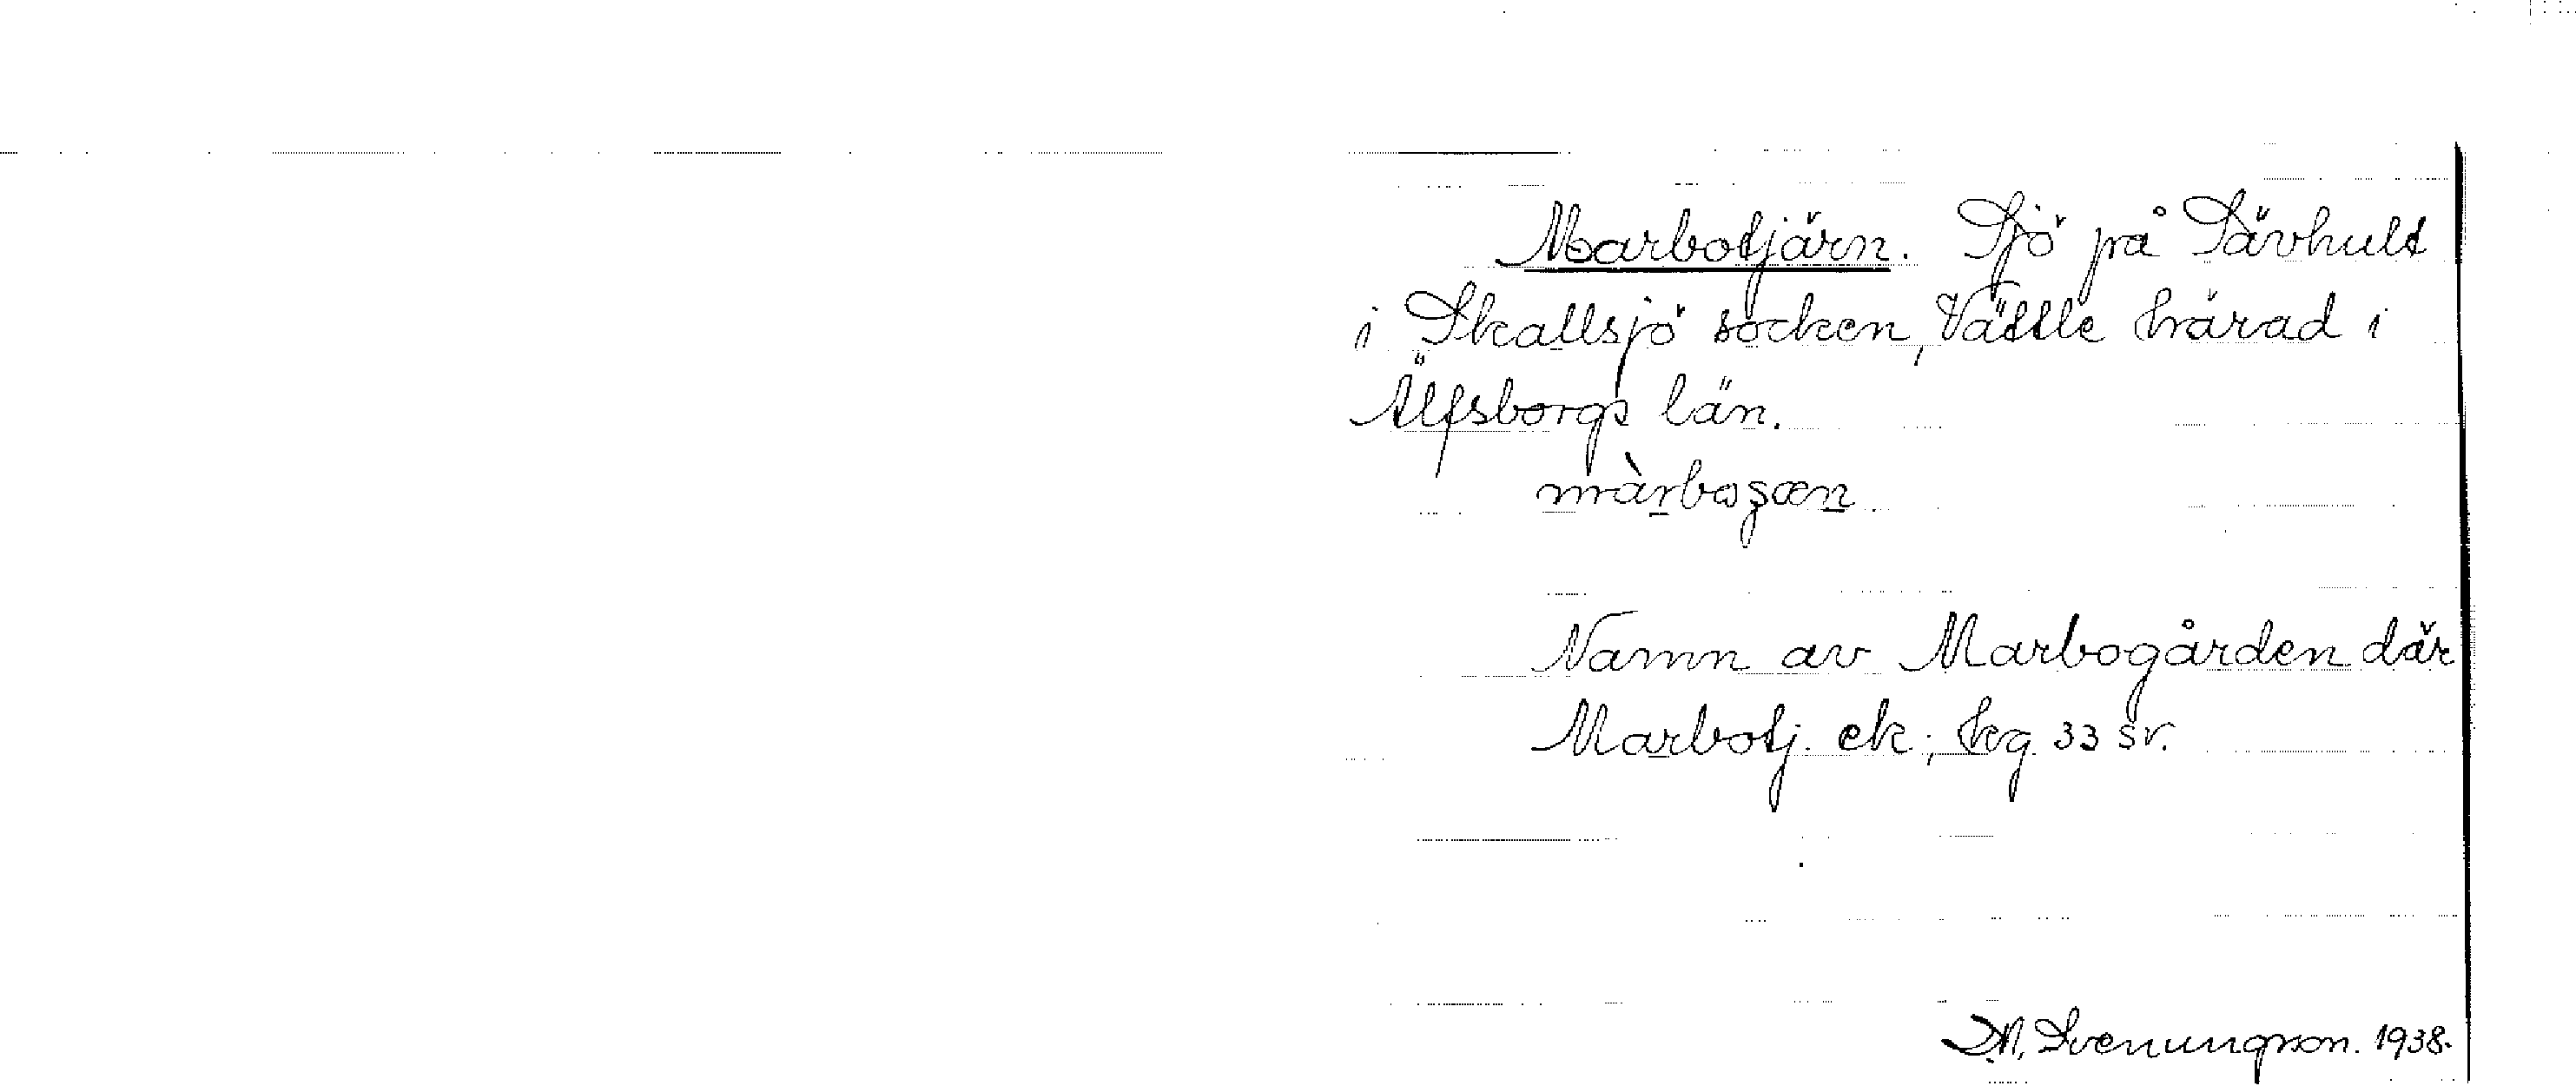 Marbotjärn. Sjö på Sävhult
i Skallsjö socken, Vättle härad i
Älfsborgs län.
Namn av Marbogården där
Marbotj. ek; kg 33 sv.
Svenungson. 1938.